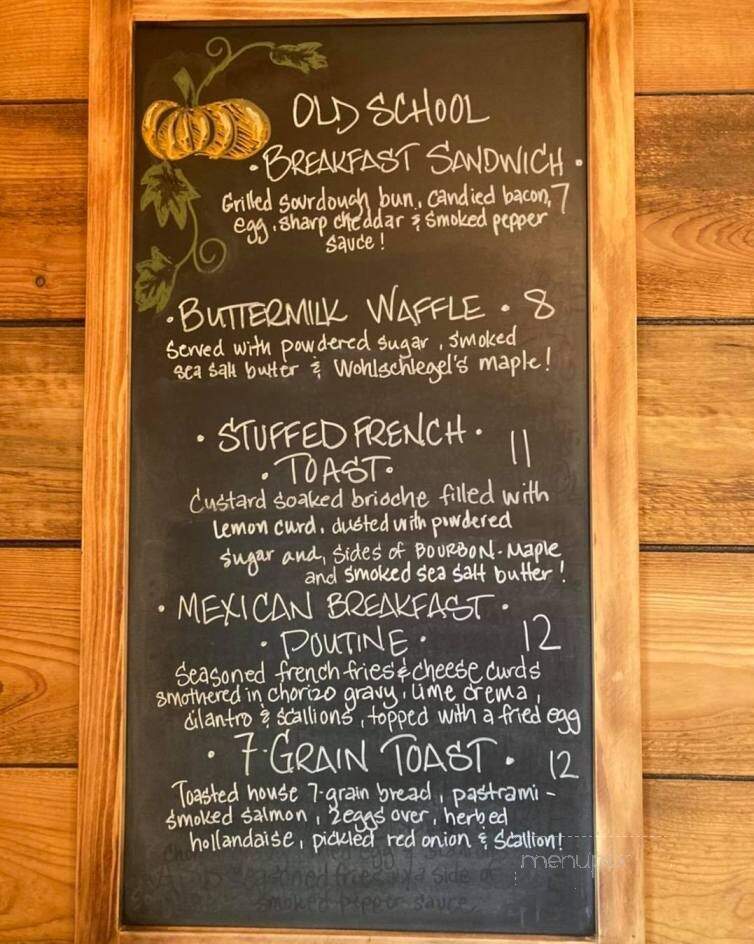 OLD SCHOOL
• BREAKFAST SANDWICH •
Grilled sourdough bun, candied bacon, 7
egg, sharp cheddar & smoked pepper
sauce!
• BUTTERMILK WAFFLE • 8
Served with powdered sugar, smoked
sea salt butter & Wohlschlegel's maple!
• STUFFED FRENCH •
• TOAST • 11
Custard soaked brioche filled with
lemon curd, dusted with powdered
sugar and, sides of BOURBON-Maple
and smoked sea salt butter!
• MEXICAN BREAKFAST •
• POUTINE • 12
Seasoned french fries & cheese curds
smothered in chorizo gravy, lime crema,
cilantro & scallions, topped with a fried egg
• 7-GRAIN TOAST • 12
Toasted house 7-grain bread, pastrami-
smoked salmon, 2 eggs over, herbed
hollandaise, pickled red onion & scallion!
menupix
fries side of
smoked pepper sauce.